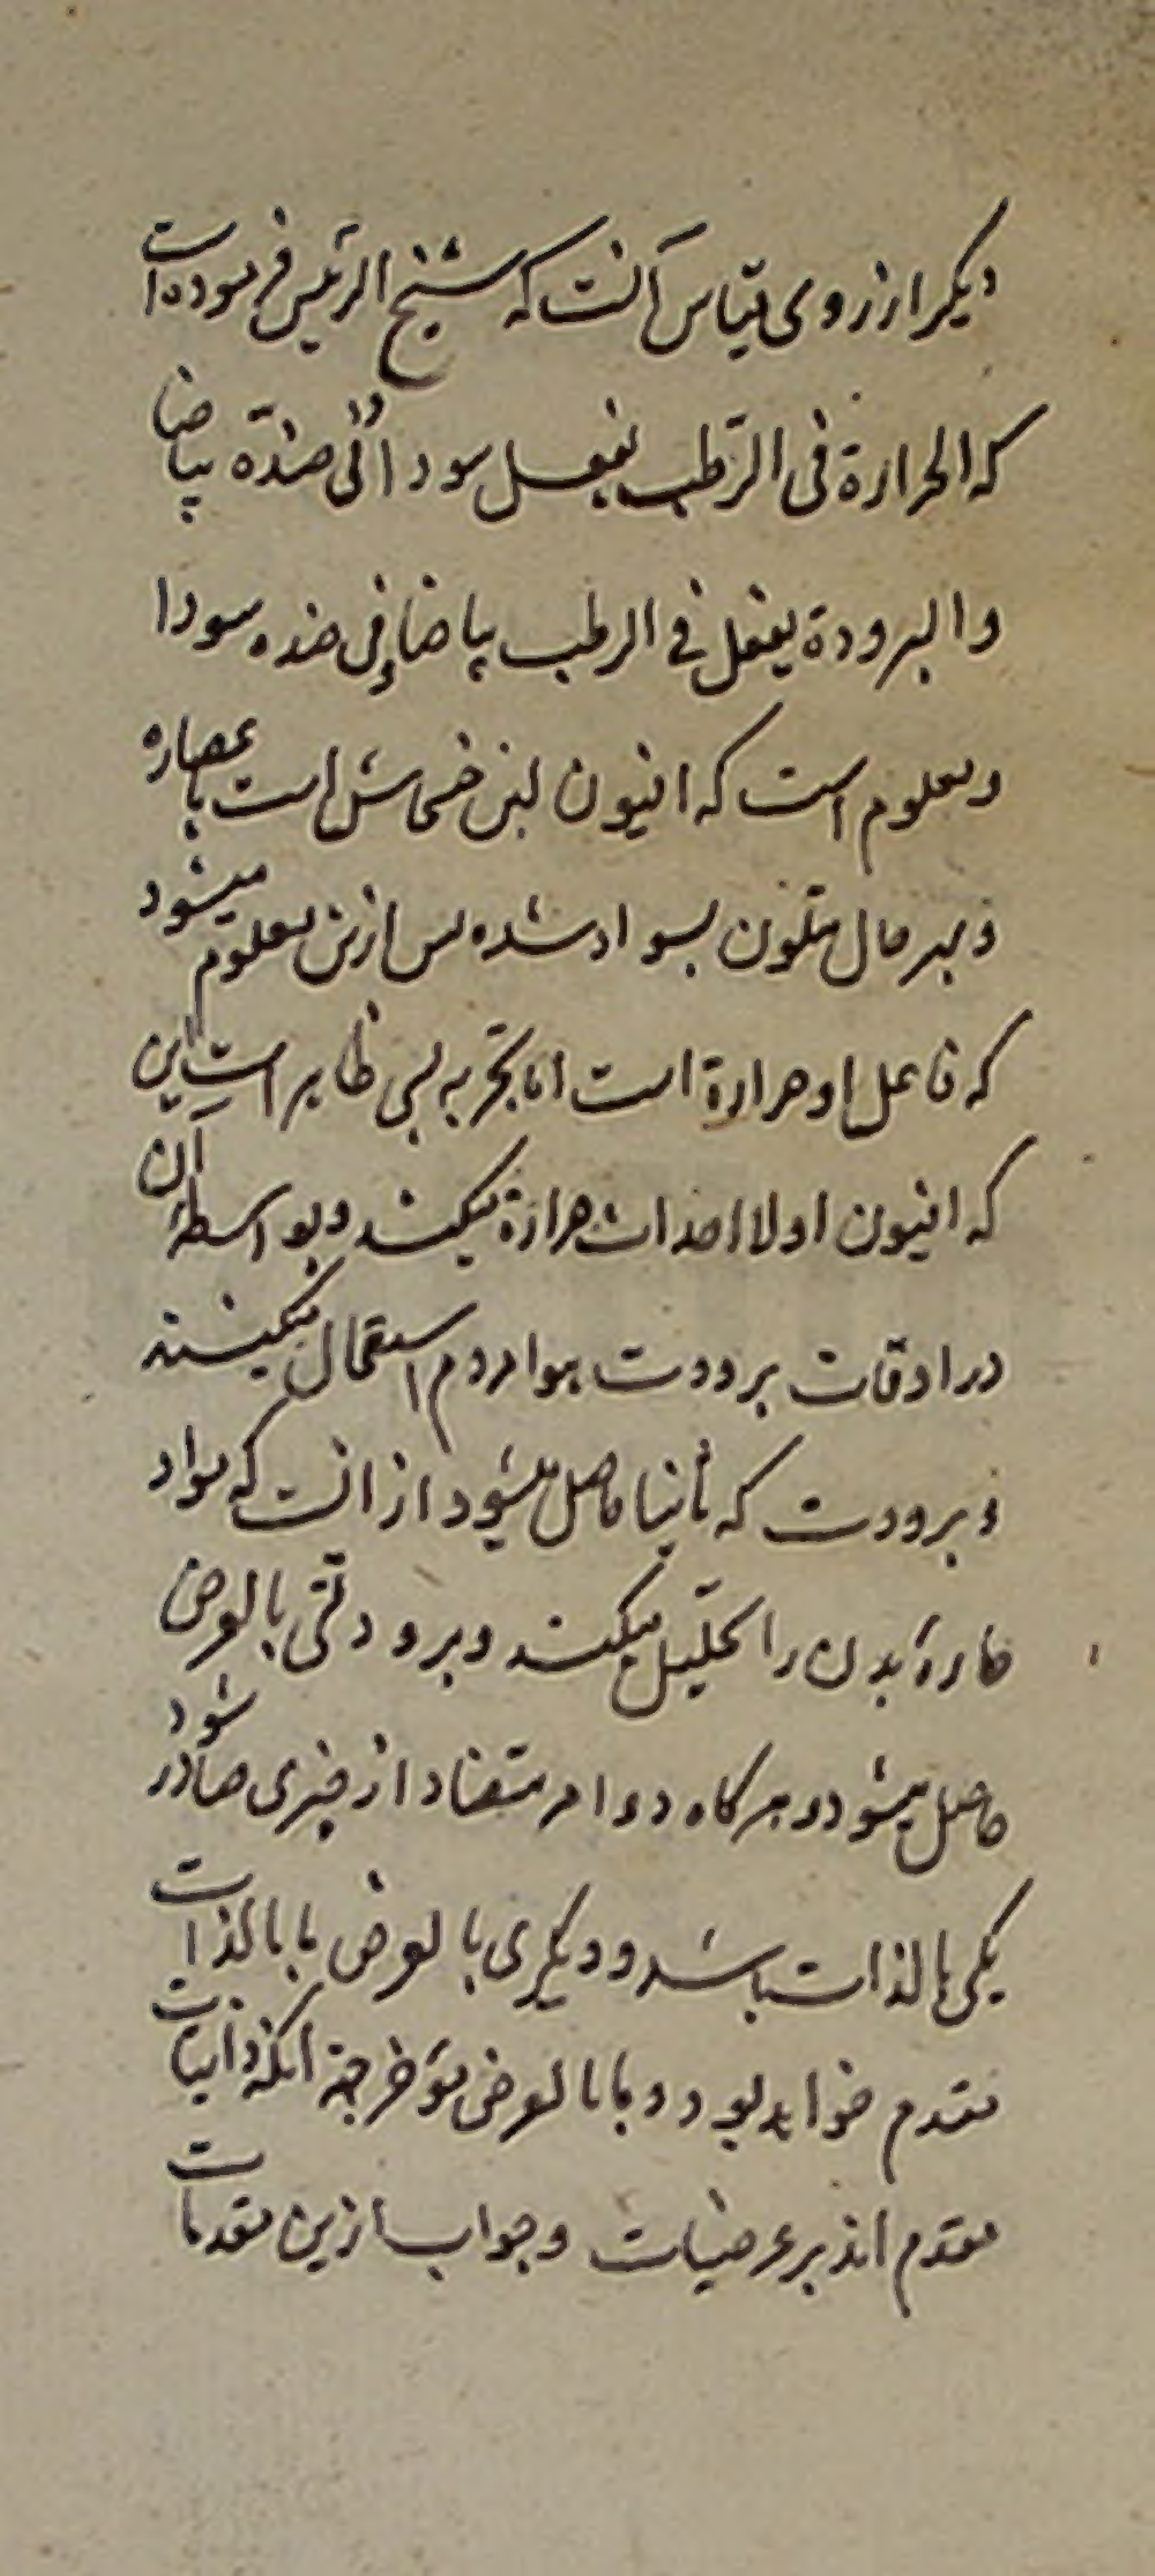 دیکر از روی قیاس آنست که شیخ الرئیس فرموده است
که الحرارة فی الرّطب یفعل سوداً فی ضدّه بیاضا
والبرودة یفعل فی الرطب بیاضا و فی ضده سودا
و معلوم است که افیون لبن خشخاش است یا عصاره
و بهر حال متلون بسواد شده پس ازین معلوم میشود
که فاعل او حرارة است اما تجربه پس ظاهر است این
که افیون اولا احداث حرارة میکند و بواسطهٔ آن
در اوقات برودت هوا مردم استعمال میکنند
و برودت که ثانیا حاصل میشود از انست که مواد
حارهٔ بدن را تحلیل میکند و برودتی بالعرض
حاصل میشود و هرکاه دو امر متضاد از چیزی صادر شود
یکی بالذات باشد و دیکری بالعرض ما بالذات
مقدم خواهد بود و ما بالعرض مؤخر جهة آنکه ذاتیات
مقدم اند بر عرضیات و جواب ازین مقدمات